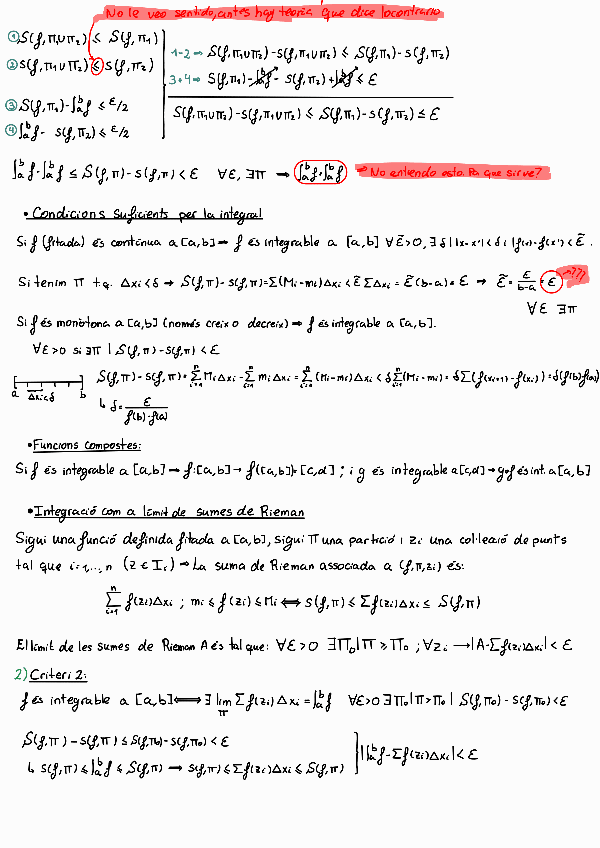 No le veo sentido, antes hay teoria que dice lo contrario
① S(f,π₁∪π₂) ≤ S(f,π₁)
② s(f,π₁∪π₂) ≤ s(f,π₂)
③ S(f,π₁)-∫ₐᵇf ≤ ε/2
④ ∫ₐᵇf - s(f,π₂) ≤ ε/2
1-2 ⇒ S(f,π₁∪π₂)-s(f,π₁∪π₂) ≤ S(f,π₁)-s(f,π₂)
3+4 ⇒ S(f,π₁)-∫ₐᵇf - s(f,π₂)+∫ₐᵇf ≤ ε
S(f,π₁∪π₂)-s(f,π₁∪π₂) ≤ S(f,π₁)-s(f,π₂) ≤ ε
∫ₐᵇf-∫ₐᵇf ≤ S(f,π)-s(f,π) < ε ∀ε, ∃π → ∫ₐᵇf=∫ₐᵇf → No entiendo esto. Pa que sirve?
• Condicions suficients per la integral
Si f (fitada) és contínua a [a,b] ⇒ f és integrable a [a,b] ∀ε̃>0, ∃δ | |x-x'|<δ i |f(x)-f(x')|<ε̃.
Si tenim π t.q. Δxi<δ → S(f,π)-s(f,π)=Σ(Mi-mi)Δxi<ε̃ΣΔxi = ε̃(b-a)=ε → ε̃=ε/(b-a)=ε →???
∀ε ∃π
Si f és monòtona a [a,b] (només creix o decreix) ⇒ f és integrable a [a,b].
∀ε>0 si ∃π | S(f,π)-s(f,π)<ε
a Δxi<δ b
S(f,π)-s(f,π)=Σⁿᵢ₌₁MiΔxi-Σⁿᵢ₌₁miΔxi=Σⁿᵢ₌₁(Mi-mi)Δxi<δΣⁿᵢ₌₁(Mi-mi)=δΣ(f(xi+1)-f(xi))=δ(f(b)-f(a))
↳ δ=ε/(f(b)-f(a))
• Funcions compostes:
Si f és integrable a [a,b] → f:[a,b]→f([a,b])=[c,d] ; i g és integrable a [c,d]→g∘f és int. a [a,b]
• Integració com a límit de sumes de Rieman
Sigui una funció definida fitada a [a,b], sigui π una partició i zi una col·lecció de punts
tal que i=1,...,n (z ∈ Ii) → La suma de Rieman associada a (f,π,zi) és:
Σⁿᵢ₌₁ f(zi)Δxi ; mi ≤ f(zi) ≤ Mi ⟺ s(f,π) ≤ Σf(zi)Δxi ≤ S(f,π)
El límit de les sumes de Rieman A és tal que: ∀ε>0 ∃π₀|π≥π₀ ; ∀zi →|A-Σf(zi)Δxi|<ε
2) Criteri 2:
f és integrable a [a,b] ⟺ ∃ lim_π Σf(zi)Δxi=∫ₐᵇf ∀ε>0 ∃π₀|π>π₀ | S(f,π₀)-s(f,π₀)<ε
S(f,π)-s(f,π) ≤ S(f,π₀)-s(f,π₀)<ε
↳ s(f,π) ≤ ∫ₐᵇf ≤ S(f,π) → s(f,π) ≤ Σf(zi)Δxi ≤ S(f,π)
|∫ₐᵇf-Σf(zi)Δxi|<ε